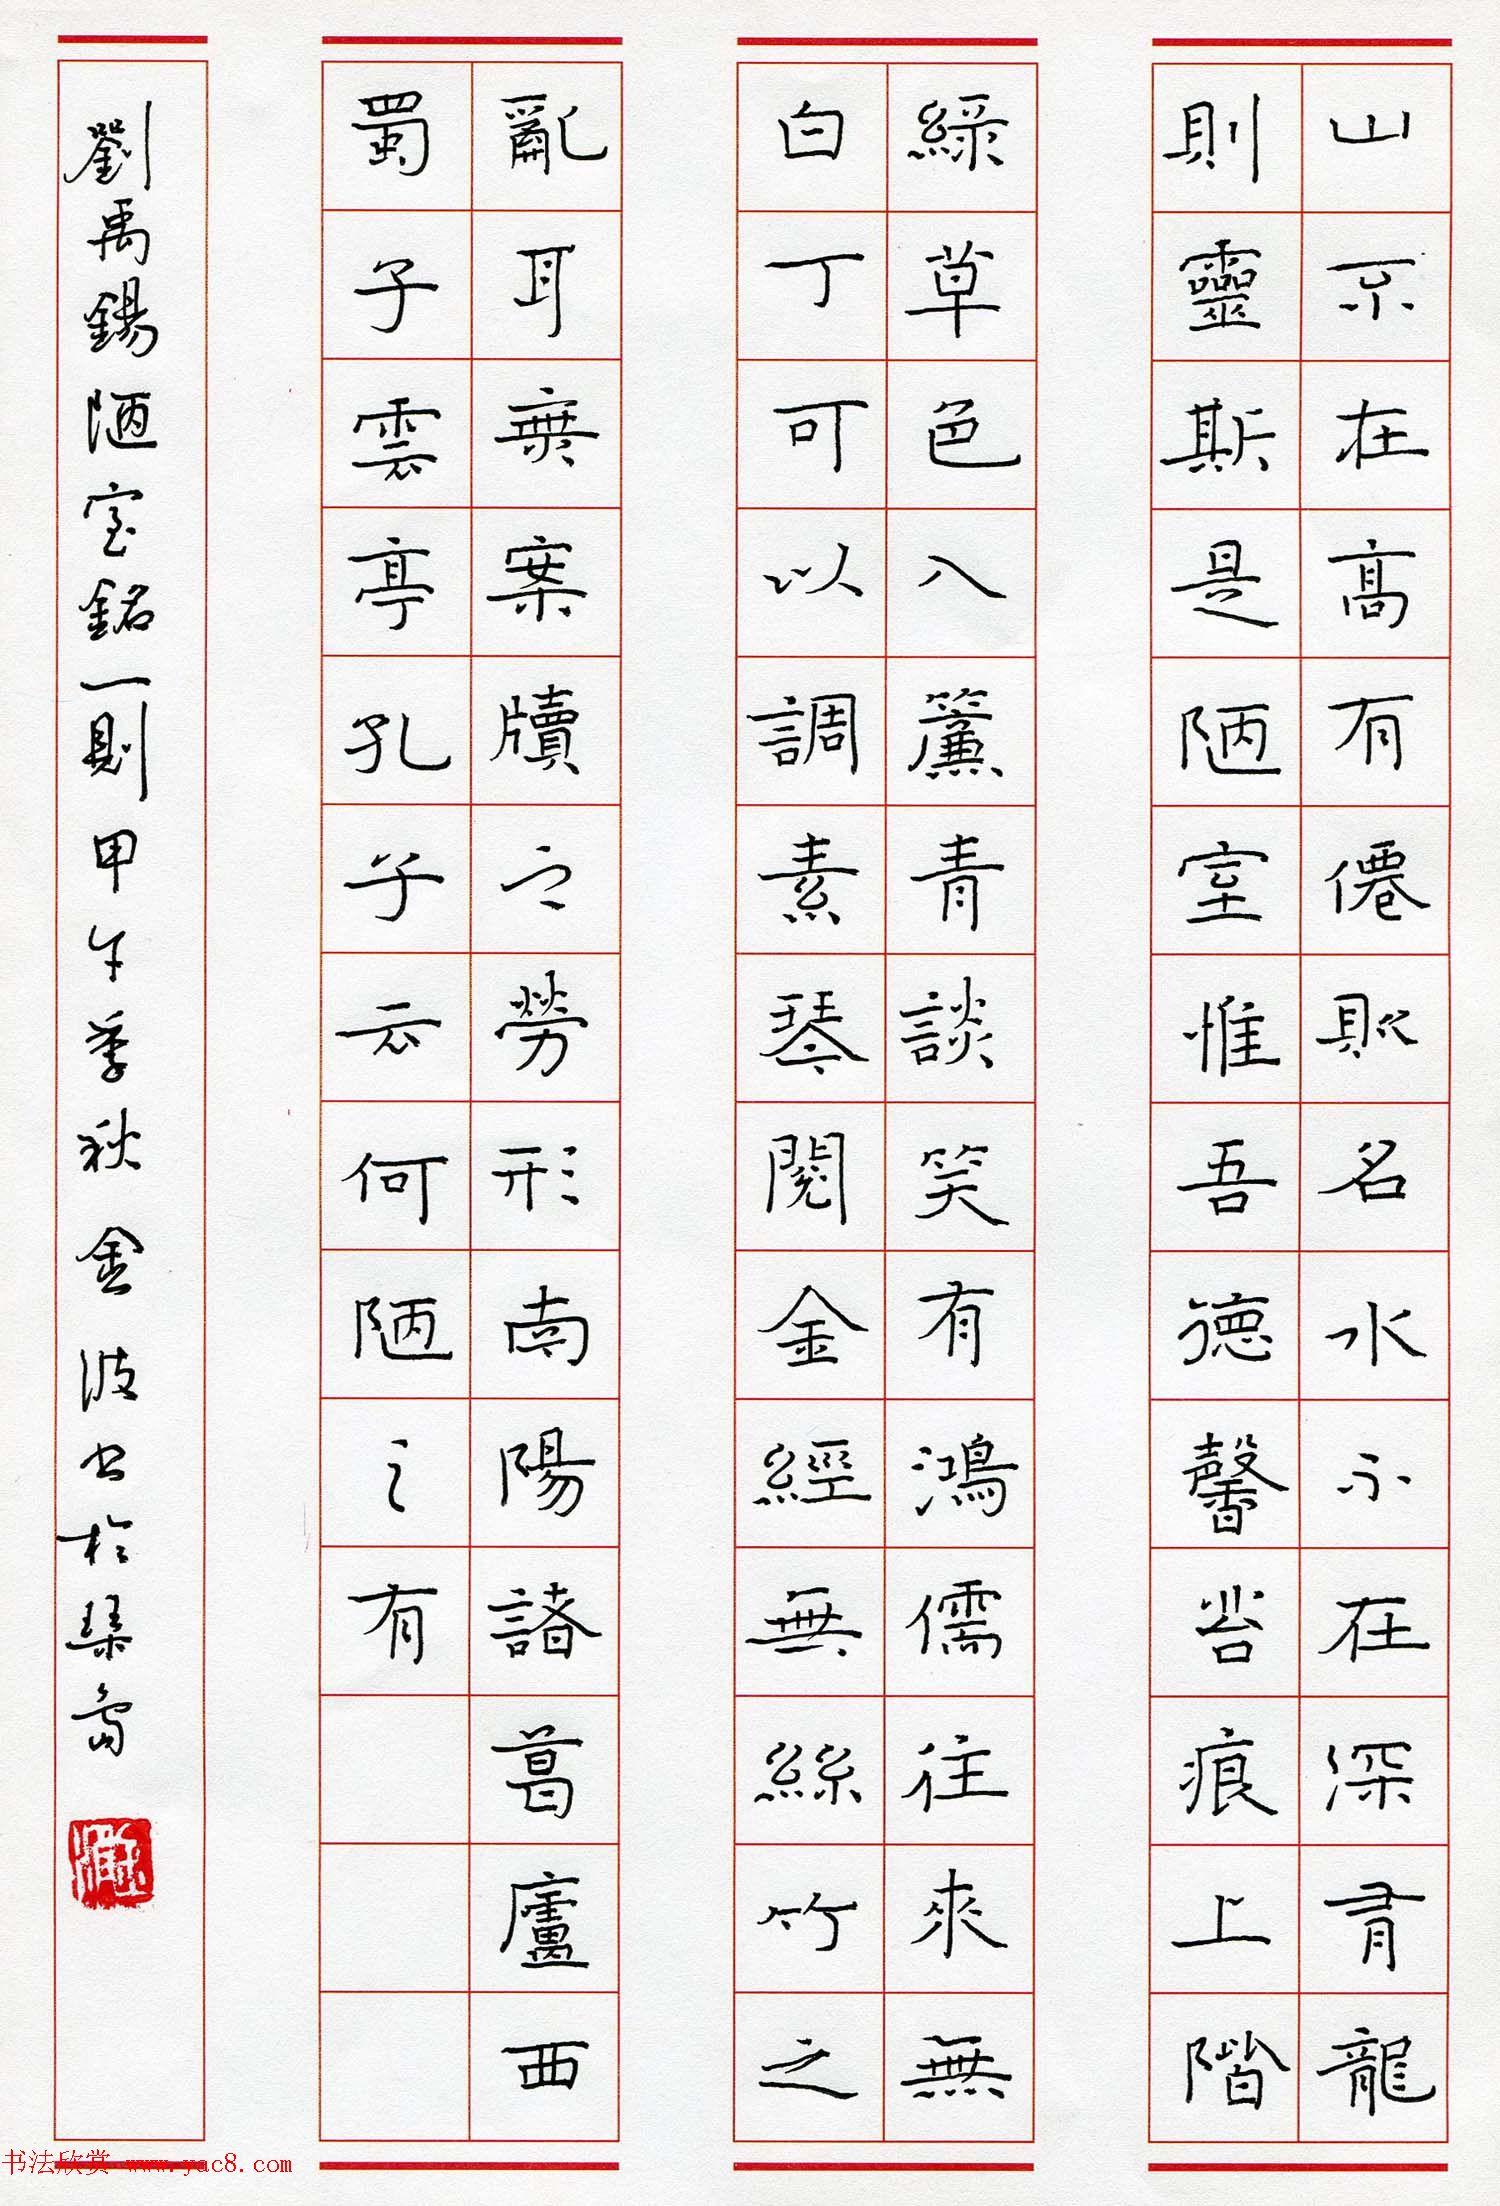 山不在高有僊則名水不在深有龍
則靈斯是陋室惟吾德馨苔痕上階
綠草色入簾青談笑有鴻儒往來無
白丁可以調素琴閱金經無絲竹之
亂耳無案牘之勞形南陽諸葛廬西
蜀子雲亭孔子云何陋之有
劉禹錫陋室銘一則甲午季秋金波書於
书法欣赏 www.yac8.com